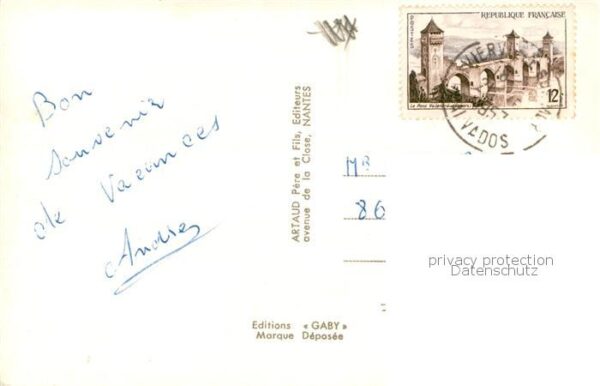 Bon
souvenir
de Vacances
Andrée
ARTAUD Père et Fils, Editeurs
avenue de la Close, NANTES
Editions « GABY »
Marque Déposée
REPUBLIQUE FRANÇAISE
POSTES
12F
Le Pont Valentré
VADOS
Mr
86
privacy protection
Datenschutz